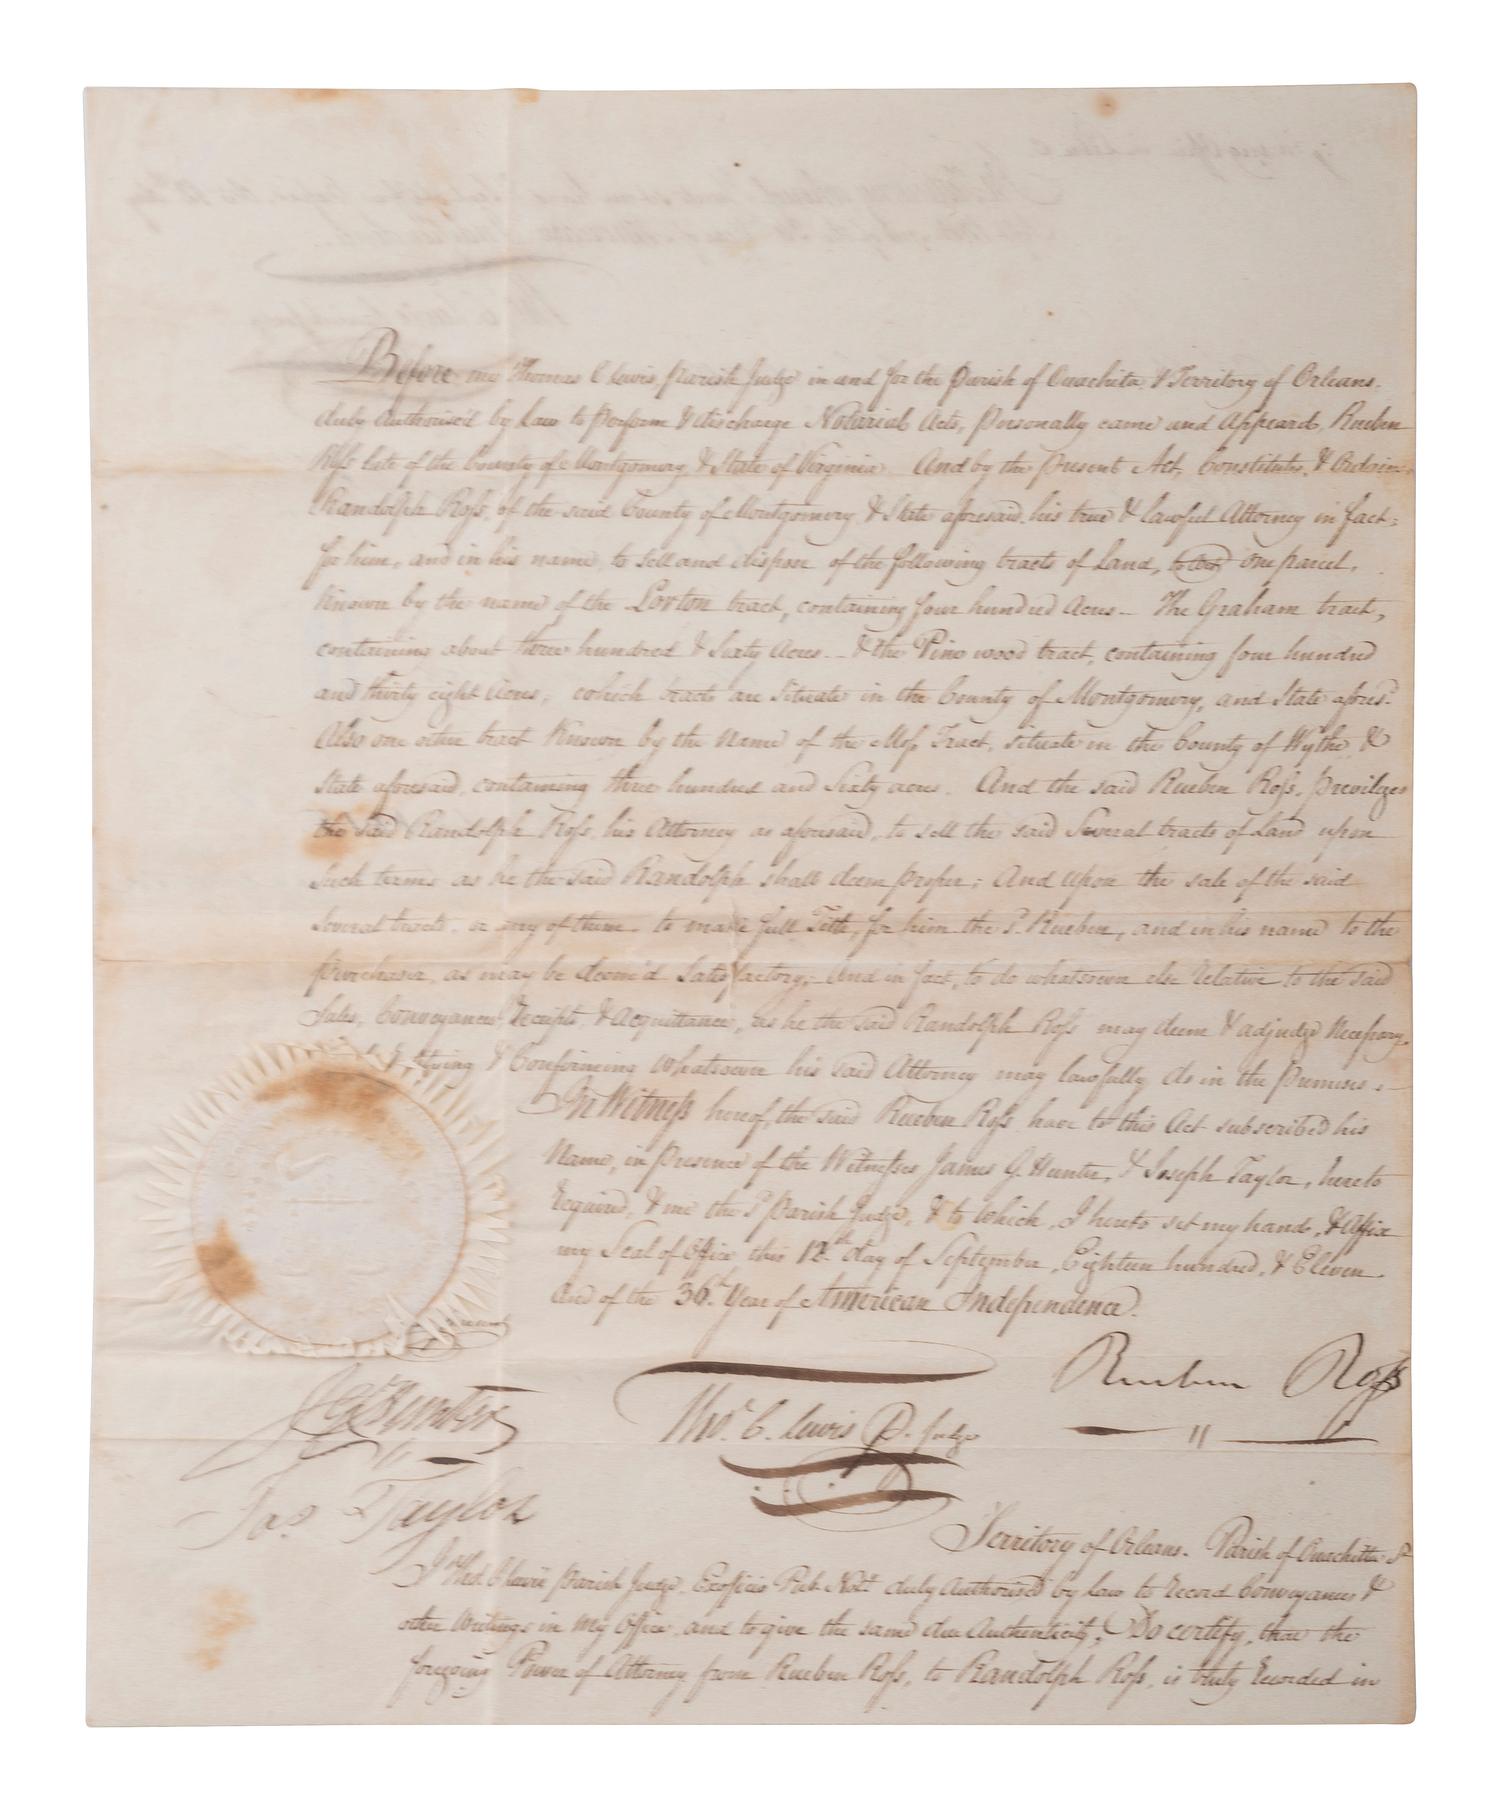 Before me Thomas C Lewis, Parish Judge in and for the Parish of Ouachita & Territory of Orleans.
duly Authorised by Law to perform & discharge Notarial Acts, personally came and Appeard, Rueben
Roſs late of the County of Montgomery, & State of Virginia. And by the present Act, Constitutes, & Ordains
Randolph Roſs, of the said County of Montgomery & State aforesaid, his true & lawful Attorney in fact:
for him, and in his name, to sell and dispose of the following tracts of Land, one parcel,
Known by the name of the Lorton tract, containing four hundred Acres - The Graham tract,
containing about three hundred & Sixty Acres. - & the Pine wood tract, containing four hundred
and thirty eight Acres; which tracts are Situate in the County of Montgomery, and State afores.d
Also one other tract Known by the Name of the Moſs Tract, situate in the County of Wythe, &
State aforesaid, containing three hundred and Sixty acres. And the said Rueben Roſs, previleges
the said Randolph Roſs, his Attorney as aforesaid, to sell the said Several tracts of Land upon
Such terms as he the said Randolph shall deem proper; And upon the sale of the said
Several tracts, or any of them, to make full Title, for him the s.d Rueben, and in his name to the
Purchaser, as may be deem'd Satisfactory; And in fact, to do whatsoever else relative to the said
Sales, Conveyances, Receipts, & Acquittances, as he the said Randolph Roſs may deem & adjudge Neceſsary.
& Confirming Whatsoever his said Attorney may lawfully do in the Premises.
In Witneſs hereof, the said Rueben Roſs have to this Act subscribed his
Name, in presence of the Witneſses James G. Hunter, & Joseph Taylor, hereto
required, & me the s.d Parish Judge, & to Which, I hereto set my hand, & Affix
my Seal of Office this 12th day of September, Eighteen hundred, & Eleven.
And of the 36th Year of American Independence.
Rueben Roſs
Jas G Hunter
Thos. C. Lewis P. Judge
Jos Taylor
Territory of Orleans. Parish of Ouachitta
I Thos C Lewis Parish Judge, Exofficio Pub. Not.y duly Authorised by law to record Conveyances &
other Writings in My Office, and to give the same due Authenticity; Do certify, that the
foregoing Power of Attorney from Rueben Roſs, to Randolph Roſs, is truly recorded in